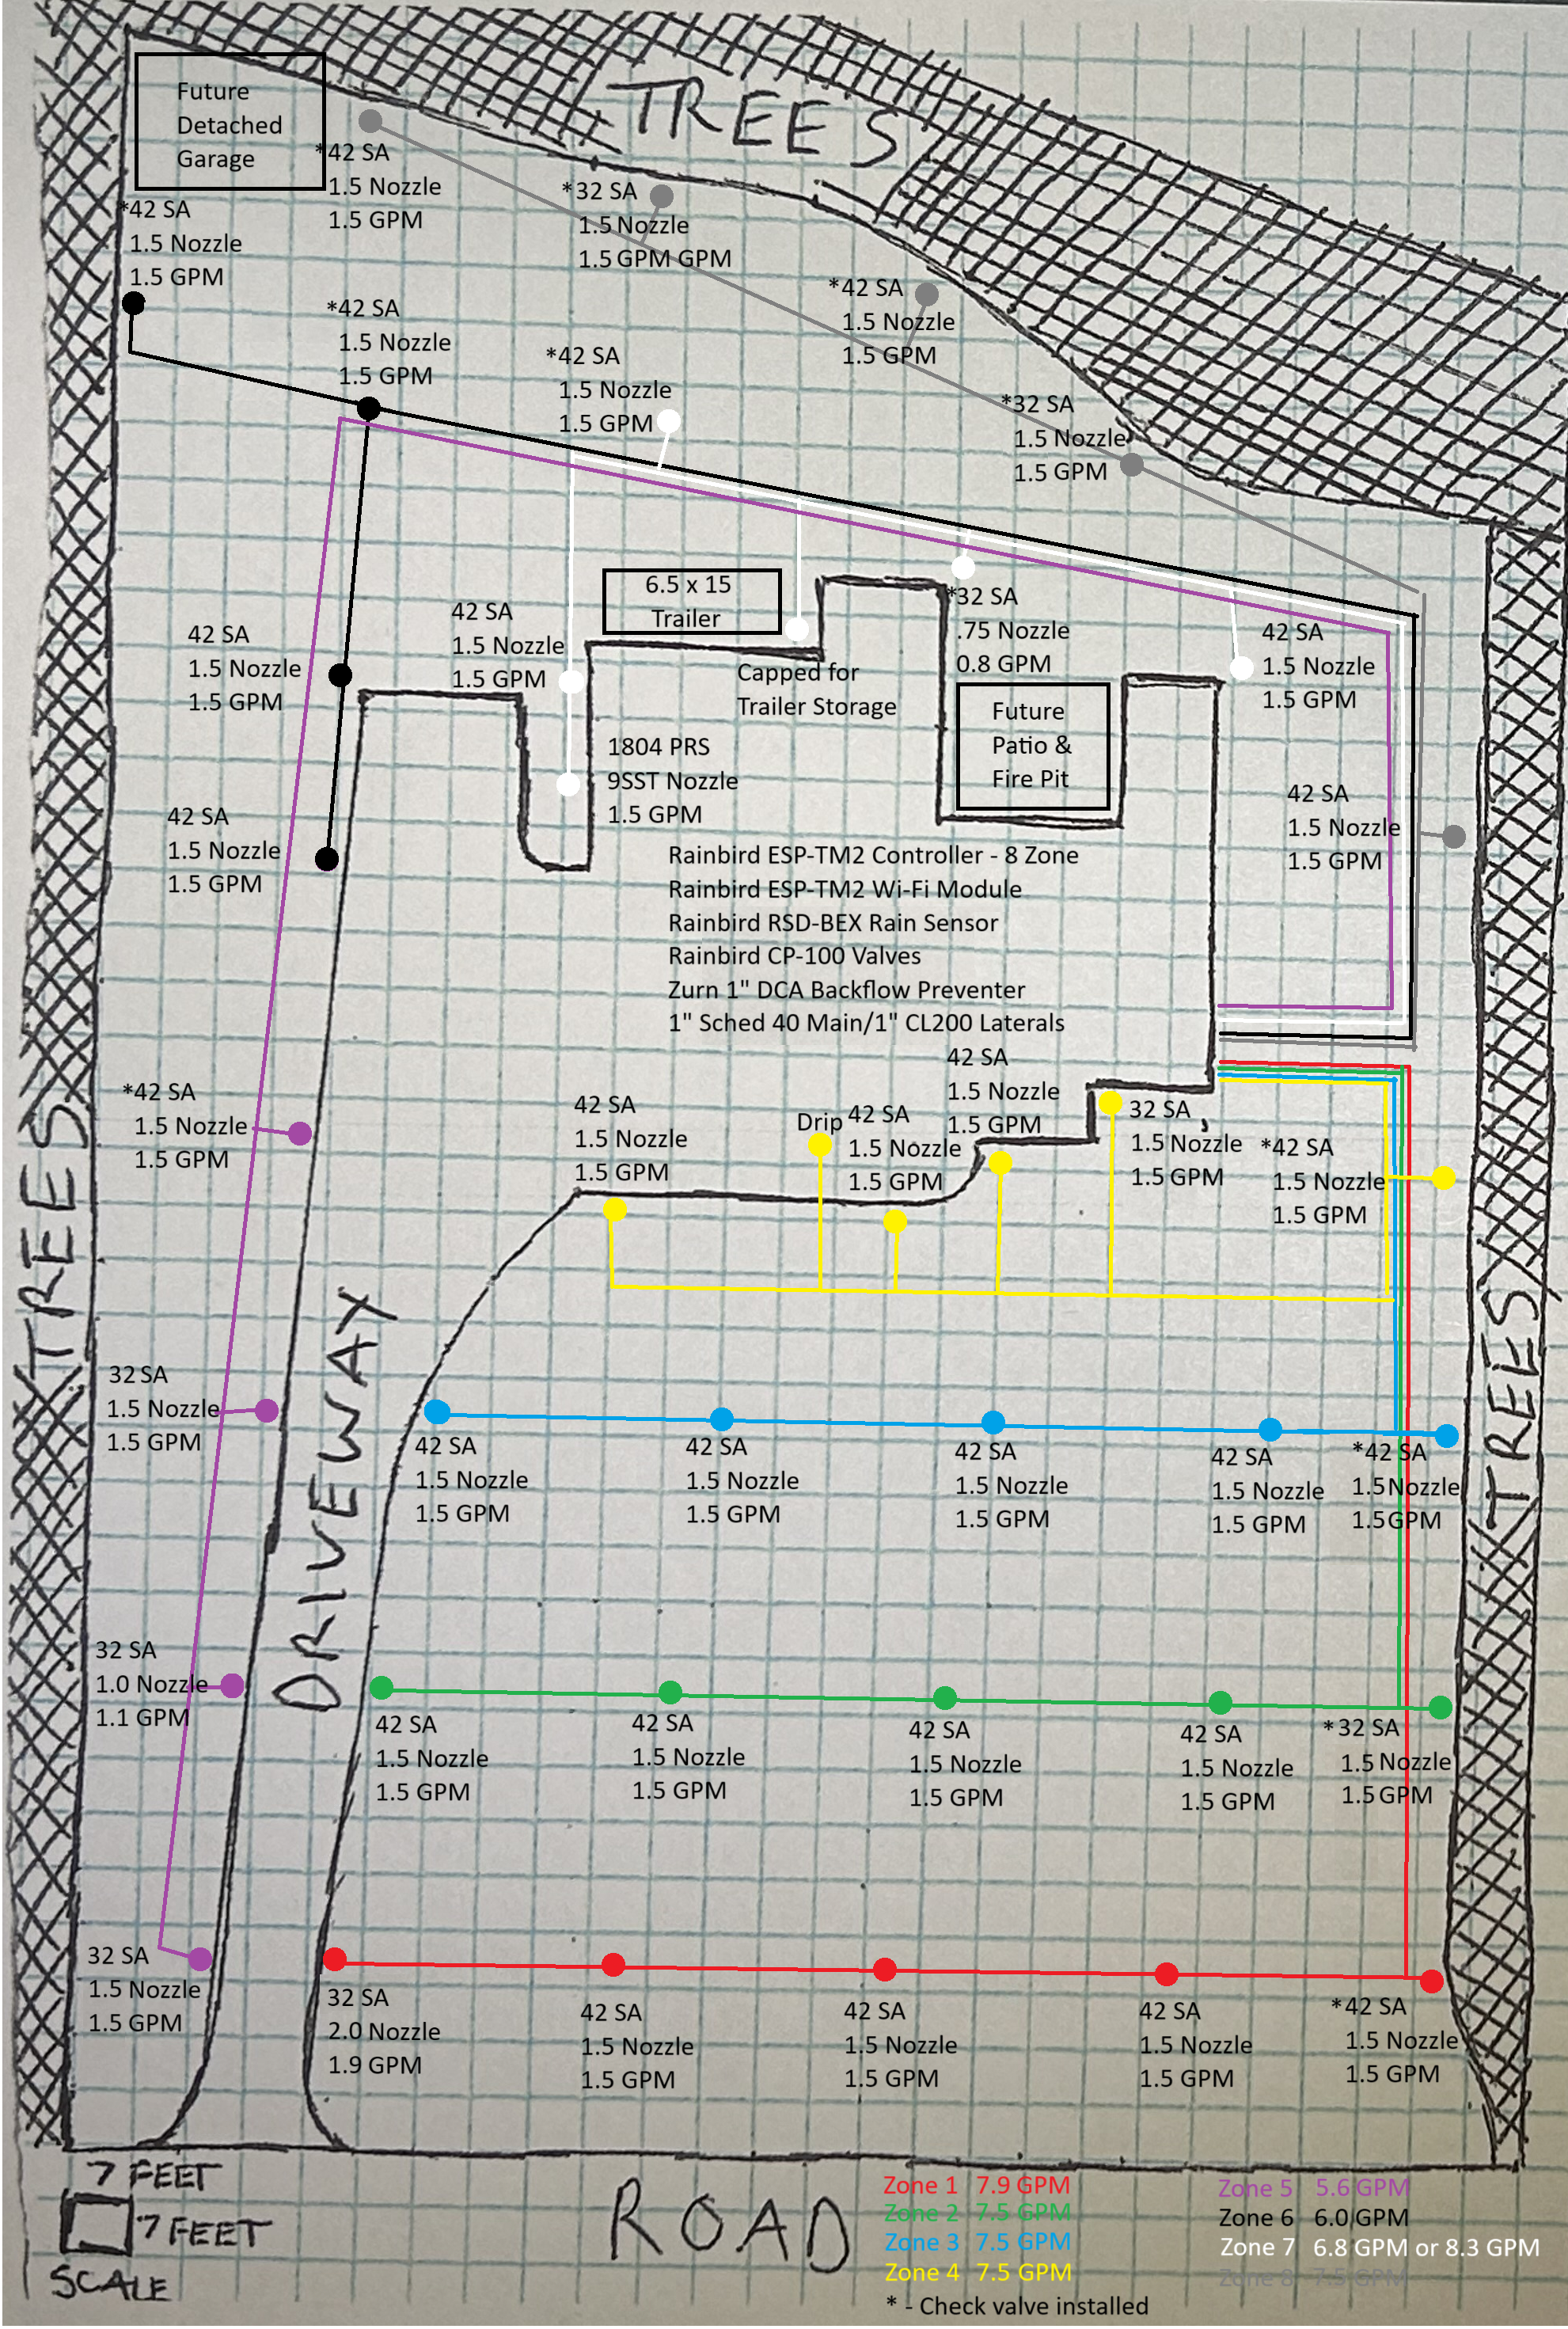 TREES
Future
Detached
Garage
*42 SA
1.5 Nozzle
1.5 GPM
*42 SA
1.5 Nozzle
1.5 GPM
*32 SA
1.5 Nozzle
1.5 GPM GPM
*42 SA
1.5 Nozzle
1.5 GPM
*42 SA
1.5 Nozzle
1.5 GPM
*42 SA
1.5 Nozzle
1.5 GPM
*32 SA
1.5 Nozzle
1.5 GPM
6.5 x 15
Trailer
*32 SA
.75 Nozzle
0.8 GPM
42 SA
1.5 Nozzle
1.5 GPM
42 SA
1.5 Nozzle
1.5 GPM
42 SA
1.5 Nozzle
1.5 GPM
Capped for
Trailer Storage
Future
Patio &
Fire Pit
1804 PRS
9SST Nozzle
1.5 GPM
42 SA
1.5 Nozzle
1.5 GPM
42 SA
1.5 Nozzle
1.5 GPM
Rainbird ESP-TM2 Controller - 8 Zone
Rainbird ESP-TM2 Wi-Fi Module
Rainbird RSD-BEX Rain Sensor
Rainbird CP-100 Valves
Zurn 1" DCA Backflow Preventer
1" Sched 40 Main/1" CL200 Laterals
42 SA
1.5 Nozzle
1.5 GPM
*42 SA
1.5 Nozzle
1.5 GPM
42 SA
1.5 Nozzle
1.5 GPM
Drip
42 SA
1.5 Nozzle
1.5 GPM
32 SA
1.5 Nozzle
1.5 GPM
*42 SA
1.5 Nozzle
1.5 GPM
TREES
DRIVEWAY
TREES
32 SA
1.5 Nozzle
1.5 GPM
42 SA
1.5 Nozzle
1.5 GPM
42 SA
1.5 Nozzle
1.5 GPM
42 SA
1.5 Nozzle
1.5 GPM
42 SA
1.5 Nozzle
1.5 GPM
*42 SA
1.5 Nozzle
1.5 GPM
32 SA
1.0 Nozzle
1.1 GPM
42 SA
1.5 Nozzle
1.5 GPM
42 SA
1.5 Nozzle
1.5 GPM
42 SA
1.5 Nozzle
1.5 GPM
42 SA
1.5 Nozzle
1.5 GPM
*32 SA
1.5 Nozzle
1.5 GPM
32 SA
1.5 Nozzle
1.5 GPM
32 SA
2.0 Nozzle
1.9 GPM
42 SA
1.5 Nozzle
1.5 GPM
42 SA
1.5 Nozzle
1.5 GPM
42 SA
1.5 Nozzle
1.5 GPM
*42 SA
1.5 Nozzle
1.5 GPM
7 FEET
7 FEET
SCALE
ROAD
Zone 1 7.9 GPM
Zone 2 7.5 GPM
Zone 3 7.5 GPM
Zone 4 7.5 GPM
* - Check valve installed
Zone 5 5.6 GPM
Zone 6 6.0 GPM
Zone 7 6.8 GPM or 8.3 GPM
Zone 8 7.5 GPM